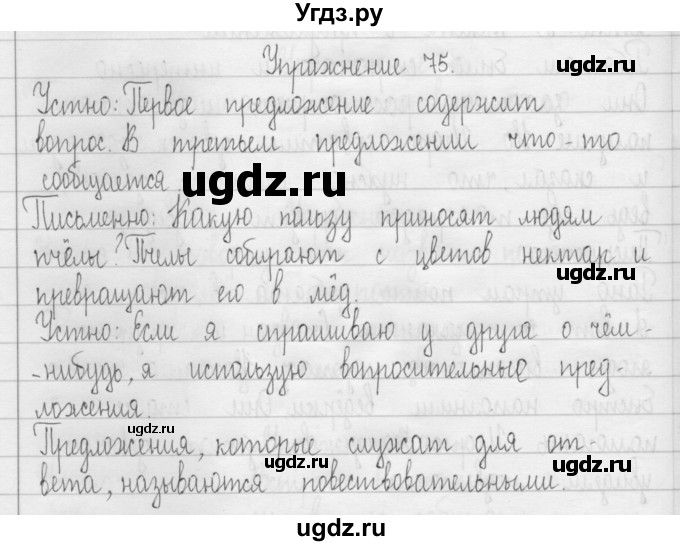 Угдз.ру
Упражнение 75.
ugdz.ru
Устно: Первое предложение содержит
ugdz.ru
вопрос. В третьем предложении что-то
сообщается.
ugdz.ru
Письменно: Какую пользу приносят людям
пчёлы? Пчелы собирают с цветов нектар и
ugdz.ru
ugdz.ru
превращают его в мёд.
Устно: Если я спрашиваю у друга о чём-
-нибудь, я использую вопросительные пред-
ugdz.ru
ложения
ugdz.ru
Предложения, которые служат для от
ugdz.ru
ugdz.ru
вета, называются повествовательными.
ugdz.ru